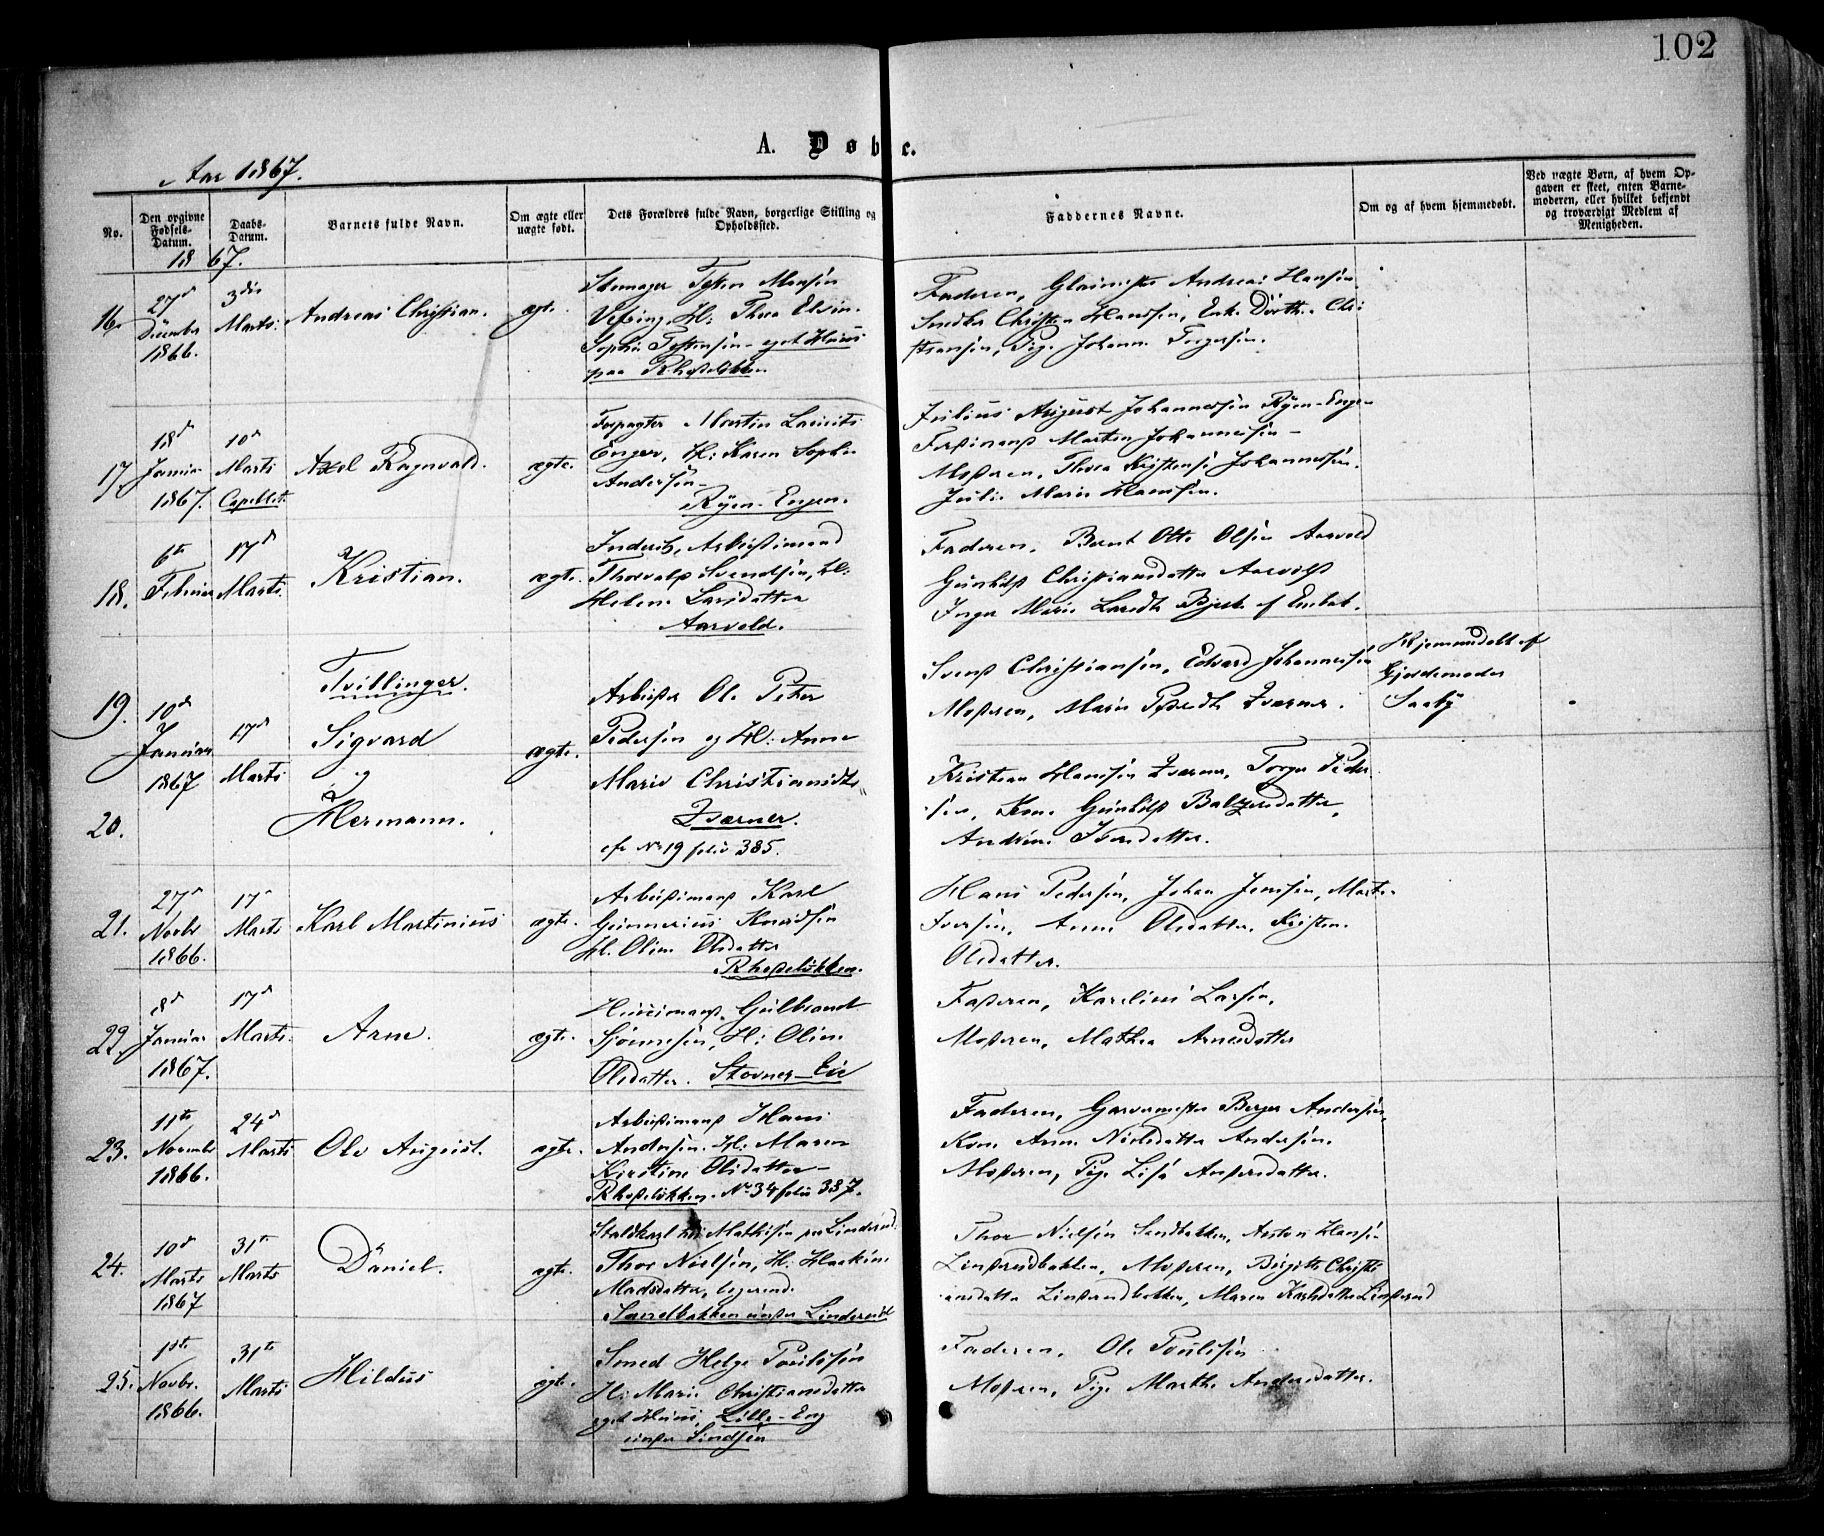 102
A. Døbte.
Aar 1867.
No.
Den opgivne Fødsels-Datum.
Daabs-Datum.
Barnets fulde Navn.
Om ægte eller uægte født.
Dets Forældres fulde Navn, borgerlige Stilling og Opholdssted.
Faddernes Navne.
Om og af hvem hjemmedøbt.
Ved uægte Børn, af hvem Opgaven er skeet, enten Barnemoderen, eller hvilket bekjendt og troværdigt Medlem af Menigheden.
1867.
16.
27d
1866.
3die
Marts.
Andreas Christian.
ægte.
Faderen, Andreas Hansen
Christen Hanssen, Enke Dorthe Chri
stiansen, Pige Johanne Torgersen.
17.
18d
Januar
1867.
10d
Marts
Axel Ragnvald.
ægte.
Forpagter Martin
Enger, H: Karen Sophie
Andersen
Ryen-Engen.
Julius August Johannessen Ryen-Engen
Ferdinand Marten Johannesen
Moderen, Thea Johannessen.
Julie Marie Hanssen.
18.
6te
Februar
17d
Marts
Kristian.
ægte.
Inderst, Arbeidsmand
Thorvald Svendsen, H:
Helene Larsdatter
Aarvold.
Faderen, Bernt Otto Olsen Aarvold
Gunhild Christiansdatter Aarvold
Inger Marie
19.
10d
Januar
1867
17d
Marts
Tvillinger.
Sigvard
og
20.
Hermann.
ægte.
Arbeider Ole Peter
Pedersen og H: Anne
Marie Christiansdtr
Tværner.
cfr No 19 folio 385.
Svend Christiansen, Edvard Johannesen
Moderen, Marie
Hjemmedøbt af
Gjordemoder
Saaby
Kristian Hanssen Tværner, Torger Peder
sen, Kone Gunhild Balzersdatter,
Andrine Iversdatter.
21.
27d
Novbr
1866.
17d
Marts
Karl Martinius
ægte.
Arbeidsmand Karl
Gunnerius Knudsen
H. Oline Olsdatter
Rhodeløkken.
Hans Pedersen, Johan Jensen,
Iversen, Anne Olsdatter, Kristen.
Olsdatter.
22.
8d
Januar
1867.
17d
Marts.
Arne.
ægte.
Huusmand Gulbrand
H: Oline
Olsdatter. Stovner-Eie
Faderen, Karelius Larsen,
Moderen, Mathea Arnesdatter
23.
11te
Novembr
1866.
24d
Marts
Ole August.
ægte.
Arbeidsmand Hans
Andersen. H: Maren
Kirstine Olsdatter
Rhodeløkken. No 34 folio 387.
Faderen, Garvermester Berger Andersen,
Kone Anne Nielsdatter Andersen.
Moderen, Pige Lisa Andersdatter.
24.
10d
Marts
1867
31te
Marts
Daniel.
ægte.
Staldkarl hos Mathisen paa Linderud
Thor Nielsen, H.
Madsdatter, logerende
Sandbakken under Linderud
Thor Nielsen Sandbakken, Anton Hansen
Linderudbakken, Moderen, Birgitte Christi
ansdatter Linderudbakken, Maren Karlsdatter Linderud
25.
1ste
Novbr.
1866.
31te
Marts
Hildus
ægte.
Smed Helge Poulsen
H: Marie Christiansdatter
eget Huus, Lille-Eng
under
Faderen, Ole Poulsen
Moderen, Pige Marthe Andersdatter.